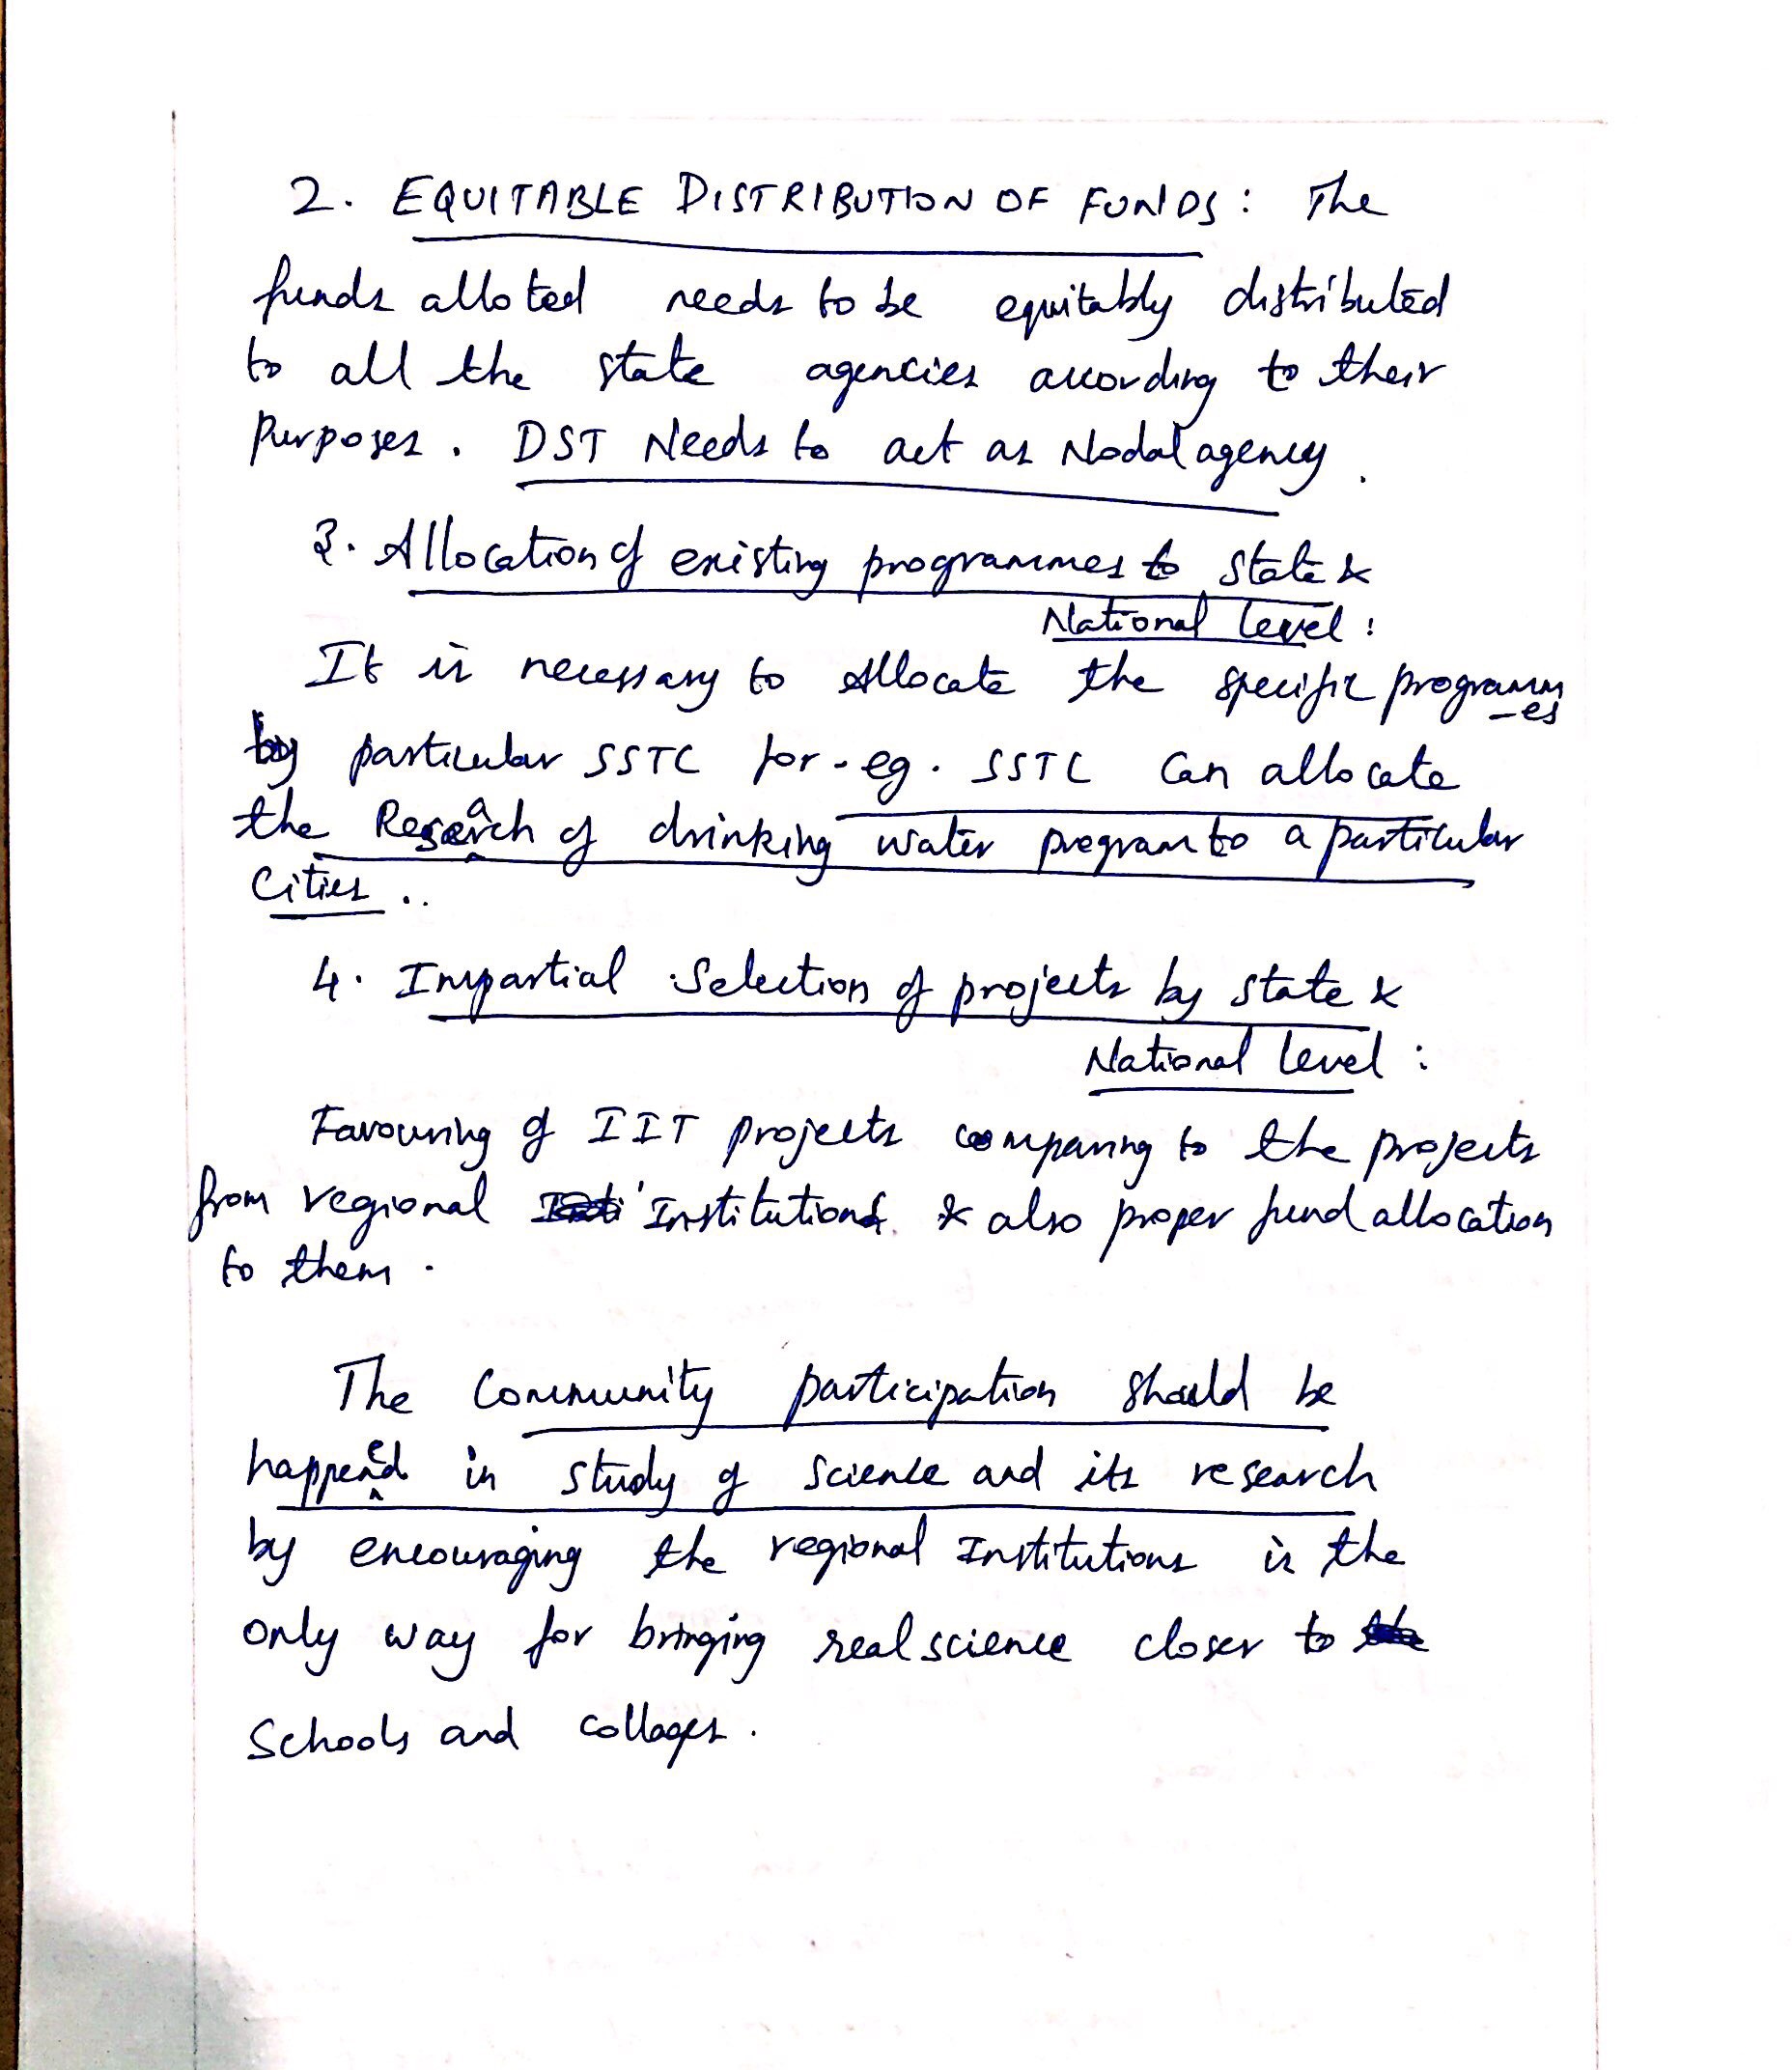 2. EQUITABLE DISTRIBUTION OF FUNDS: The
funds alloted needs to be equitably distributed
to all the state agencies according to their
Purposes. DST Needs to act as Nodal agency.
3. Allocation of existing programmes to State &
National level:
It is necessary to Allocate the specific programm
-es
by particular SSTC for-eg. SSTC Can allocate
the Research of drinking water program to a particular
Cities..
4. Impartial Selection of projects by state &
National level:
Favouring of IIT projects comparing to the projects
from regional Institutions. & also proper fund allocation
to them.
The Community participation should be
happened in study of Science and its research
by encouraging the regional Institutions is the
only way for bringing real science closer to
Schools and collages.